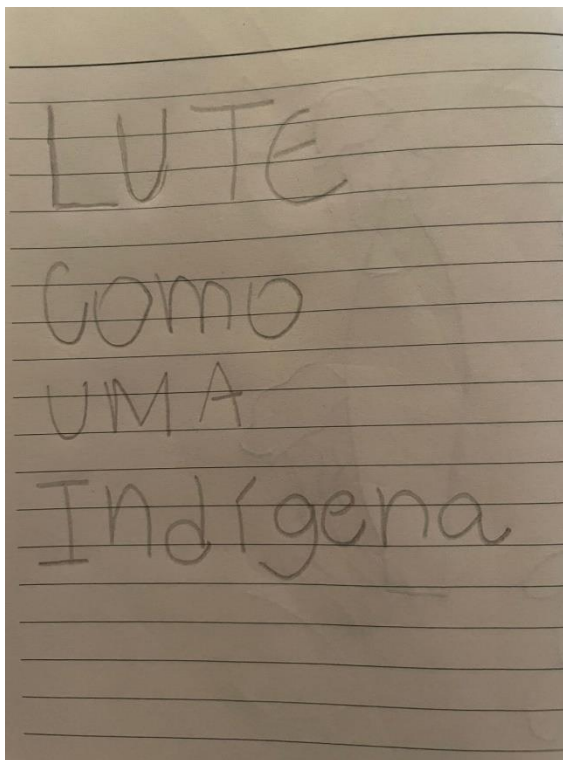 LUTE
COMO
UMA
Indígena